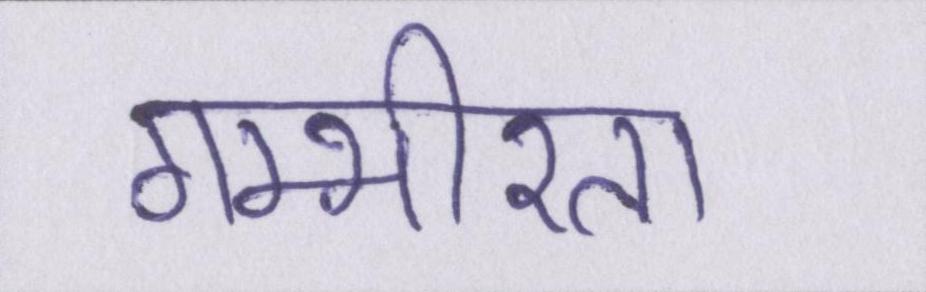 गम्भीरता